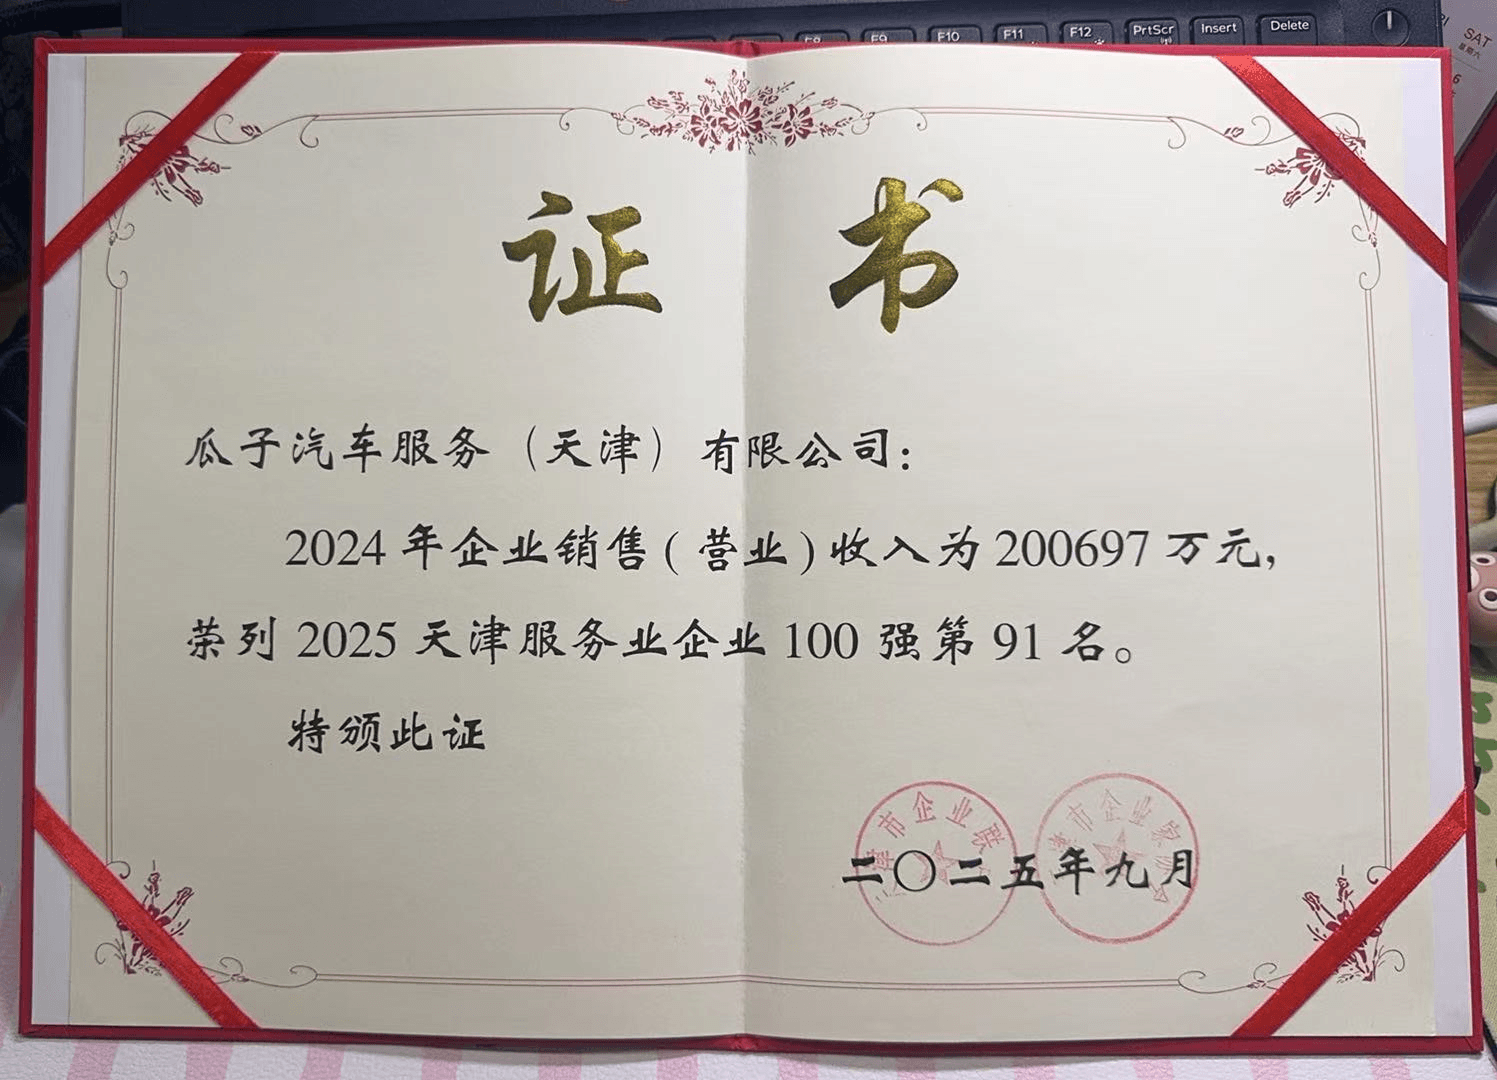 F8 F9 F10 F11 F12 PrtScr Insert Delete
SAT
星期六
6
证书
瓜子汽车服务（天津）有限公司：
2024年企业销售(营业)收入为200697万元，
荣列2025天津服务业企业100强第91名。
特颁此证
津市企业联
津市企业家协会
二〇二五年九月